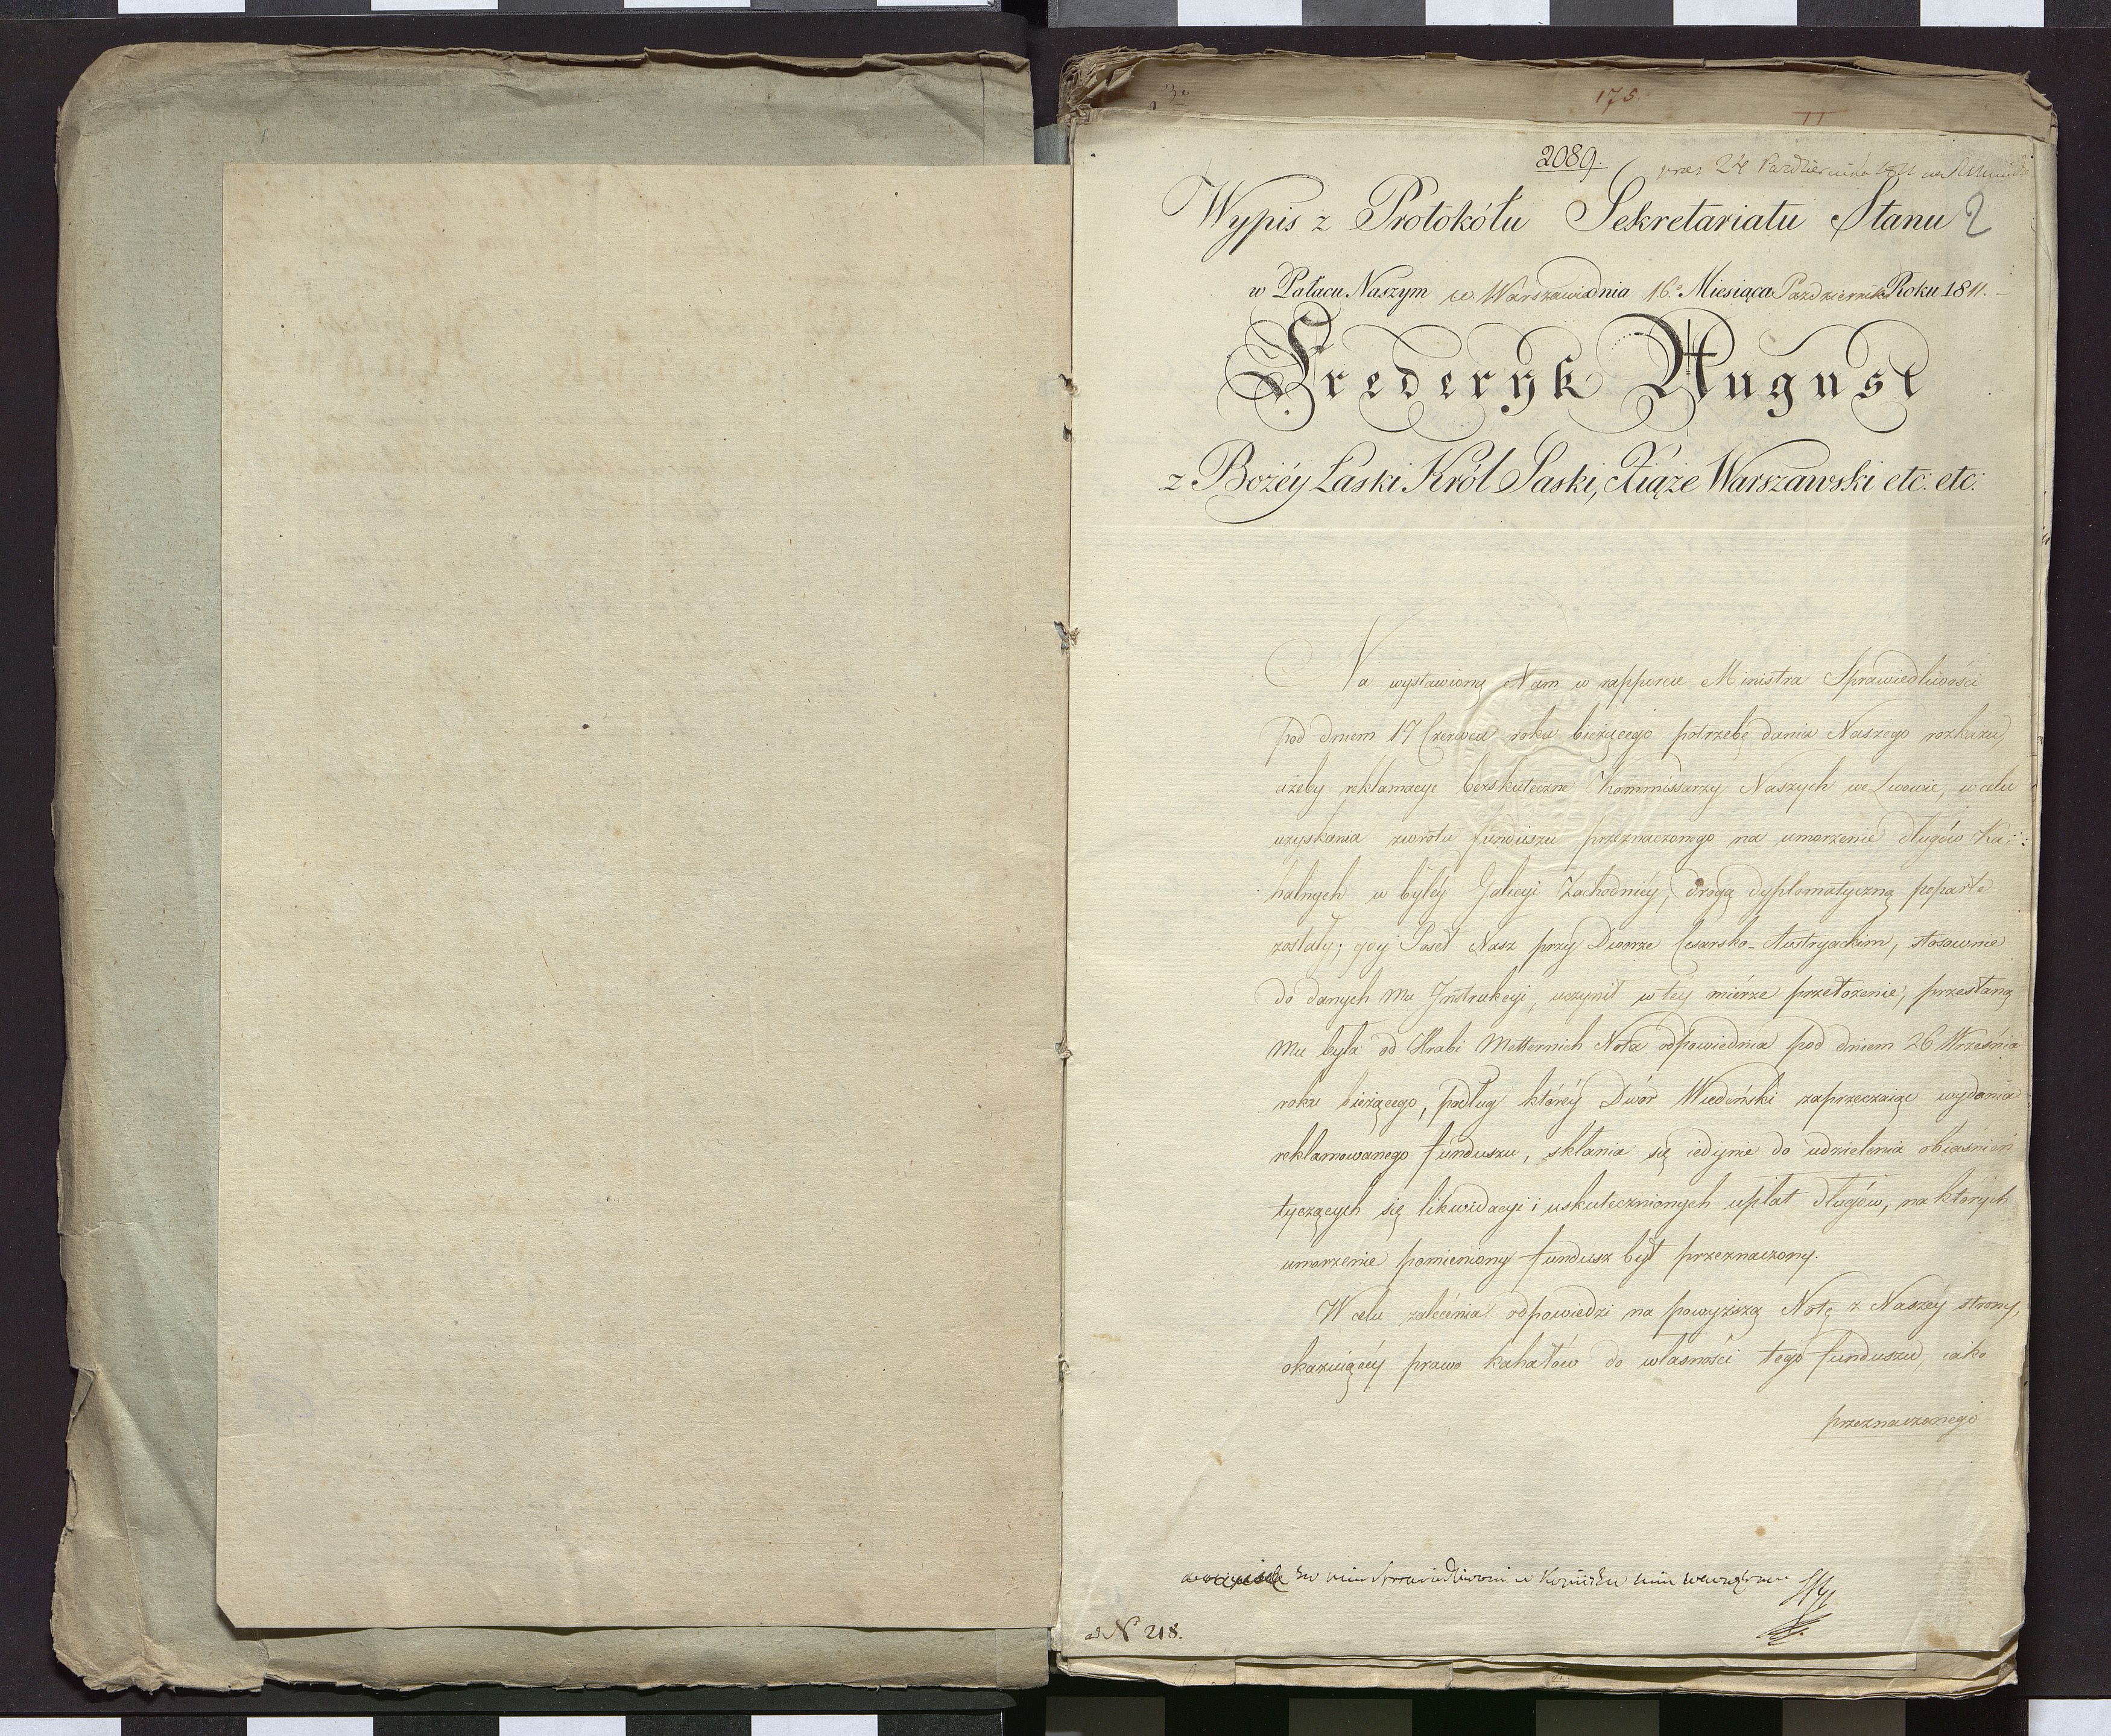 175.
2089.
prez 24 Października 1811
Wypis z Protokółu Sekretariatu Stanu 2
w Pałacu Naszym w Warszawie dnia 16º Miesiąca Października Roku 1811.
Fryderyk August
z Bożéy Łaski Król Saski, Xiąże Warszawski etc: etc:
Na wystawioną Nam w rapporcie Ministra Sprawiedliwości
pod dniem 17 Czerwca roku bieżącego potrzebę dania Naszego rozkazu,
ażeby reklamacye bezskuteczne Kommissarzy Naszych we Lwowie, w celu
uzyskania zwrotu funduszu przeznaczonego na umorzenie długów Ka=
halnych w byłéy Galicyi Zachodniéy, drogą dyplomatyczną poparte
zostały; gdy Poseł Nasz przy Dworze Cesarsko-Austryackim, stosownie
do danych Mu Instrukcyi, uczynił w téy mierze przełożenie, przesłaną
Mu była od Hrabi Metternich Nota odpowiednia pod dniem 26 Września
roku bieżącego, podług któréy Dwór Wiedeński zaprzeczaiąc wydania
reklamowanego funduszu, skłania się iedynie do udzielenia obiaśnień
tyczących się likwidacyi i uskutecznionych upłat długów, na których
umorzenie pomieniony fundusz był przeznaczony.
W celu zalecenia odpowiedzi na powyższą Notę z Naszéy strony,
okazuiącéy prawo kahałów do własności tego funduszu, iako
przeznaczonego
Sprawiedliwości w
ad Nº 218.